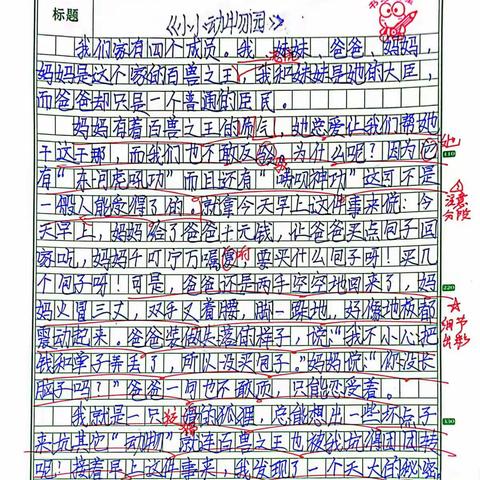 标题
《小小动物园》
我们家有四个成员。我、妹妹、爸爸、妈妈,
妈妈是这个家的百兽之王,我和妹妹是她的大臣,
而爸爸却只是一个普通的臣民。
妈妈有着百兽之王的质气,她总爱让我们帮她
干这干那,而我们也不敢反 为什么呢?因为
有“东河虎吼功”而且还有“嘀叨神功”这可不是
一般人能忍得了的。就拿今天早上这件事来说:今
天早上,妈妈给了爸爸十元钱,让爸爸买点包子回
家吃,妈妈千叮宁万嘱 要买什么包子呀!买几
个包子呀!可是,爸爸还是两手空空地回来了,妈
妈火冒三丈,双手叉着腰,脚一跺地,好像地板都
震动起来。爸爸装做失落的样子,说:“我不小心把
钱和单子弄丢了,所以没买包子。”妈妈说:“你没长
脑子吗?”爸爸一句也不敢顶,只能忍受着。
我就是一只 的狐狸,总能想出一些坏点子
来坑其它“动物”就连百兽之王也被我坑得团团转
呢!接着早上这件事来,我发现了一个天大的秘密
她
注意
分段
细节
出彩
110
220
330